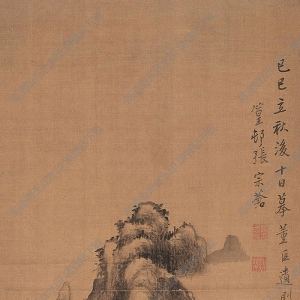 己巳立秋後十日摹董巨遺則
篁邨張宗蒼